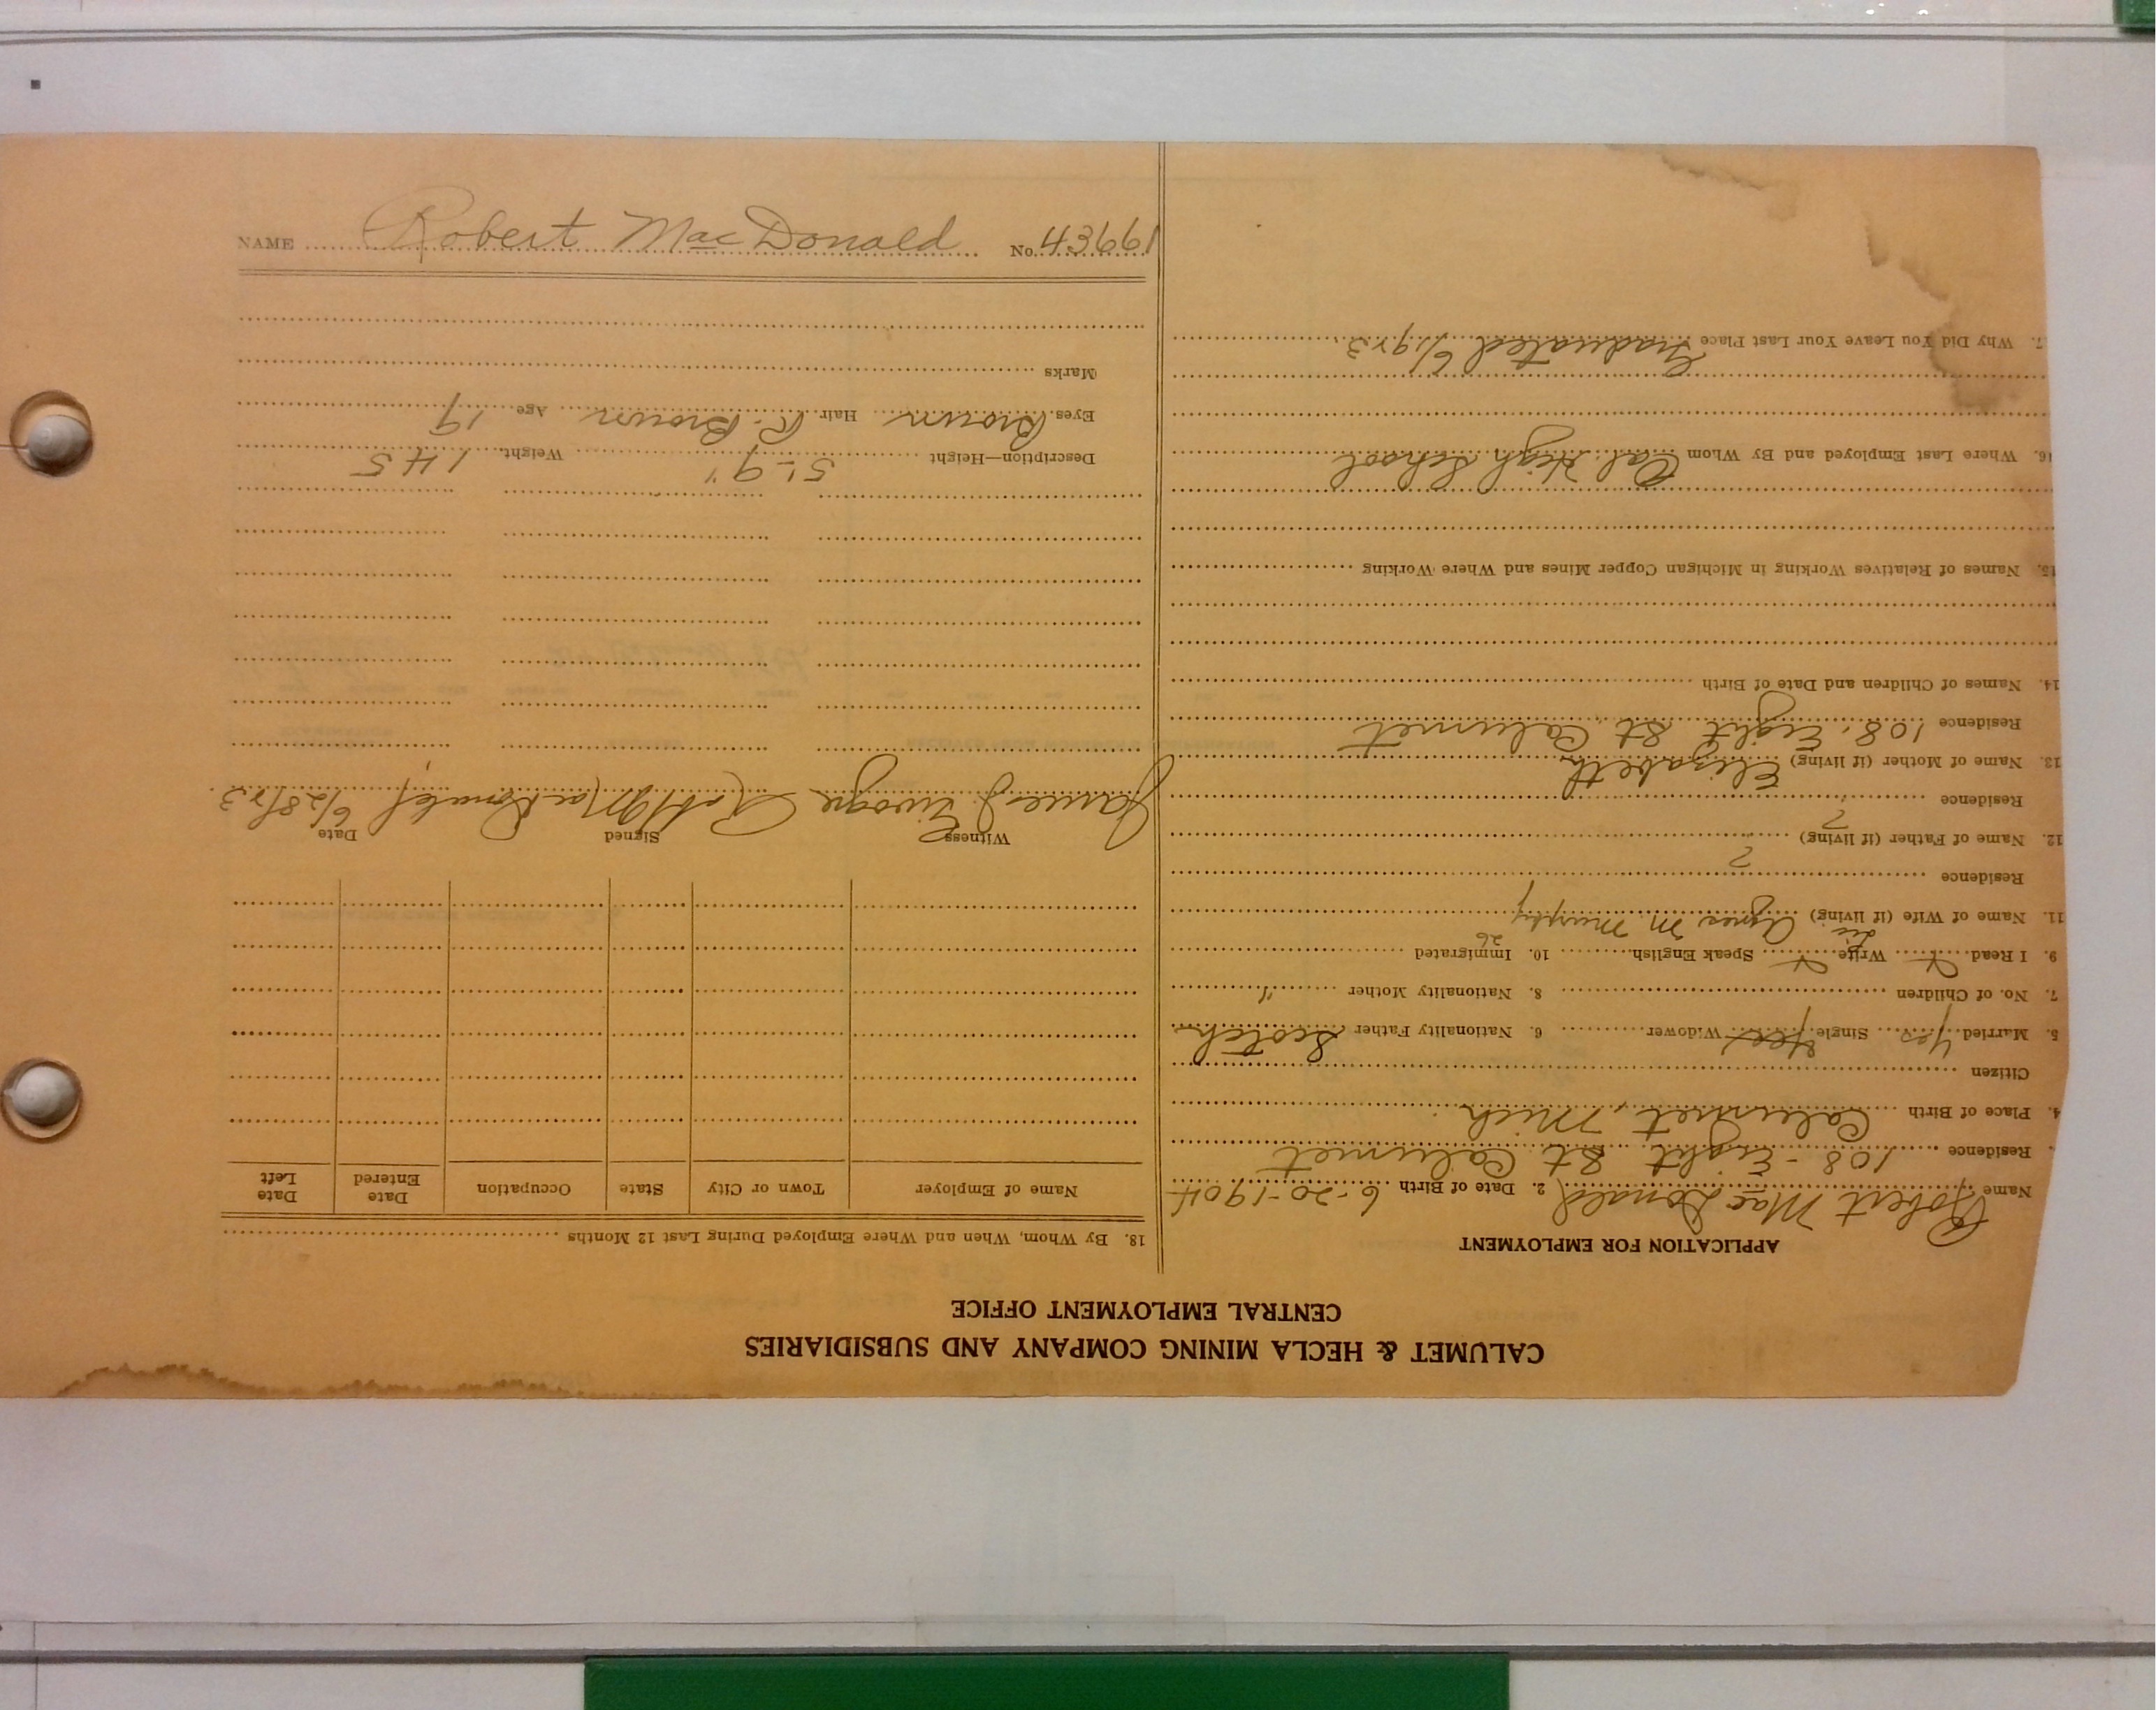 CALUMET & HECLA MINING COMPANY AND SUBSIDIARIES
CENTRAL EMPLOYMENT OFFICE
APPLICATION FOR EMPLOYMENT
Name Robert MacDonald 2. Date of Birth 6-20-1904
Residence 108 - Eight St Calumet
4. Place of Birth Calumet, Mich
Citizen
5. Married yes Single yes Widower 6. Nationality Father Scotch
7. No. of Children 8. Nationality Mother "
9. I Read Write Speak English 10. Immigrated
26
11. Name of Wife (if living) Agnes M Murphy
Residence ?
12. Name of Father (if living) ?
Residence
13. Name of Mother (if living) Elizabeth
Residence 108. Eight St. Calumet
14. Names of Children and Date of Birth
15. Names of Relatives Working in Michigan Copper Mines and Where Working
16. Where Last Employed and By Whom Cal High School
7. Why Did You Leave Your Last Place Graduated 6/1923
18. By Whom, When and Where Employed During Last 12 Months
Name of Employer Town or City State Occupation Date Entered Date Left
Witness Signed Date
James J. Robt MacDonald 6/28/23
Description—Height 5-9" Weight 145
Eyes Brown Hair R. Brown Age 19
Marks
NAME Robert MacDonald No. 43661